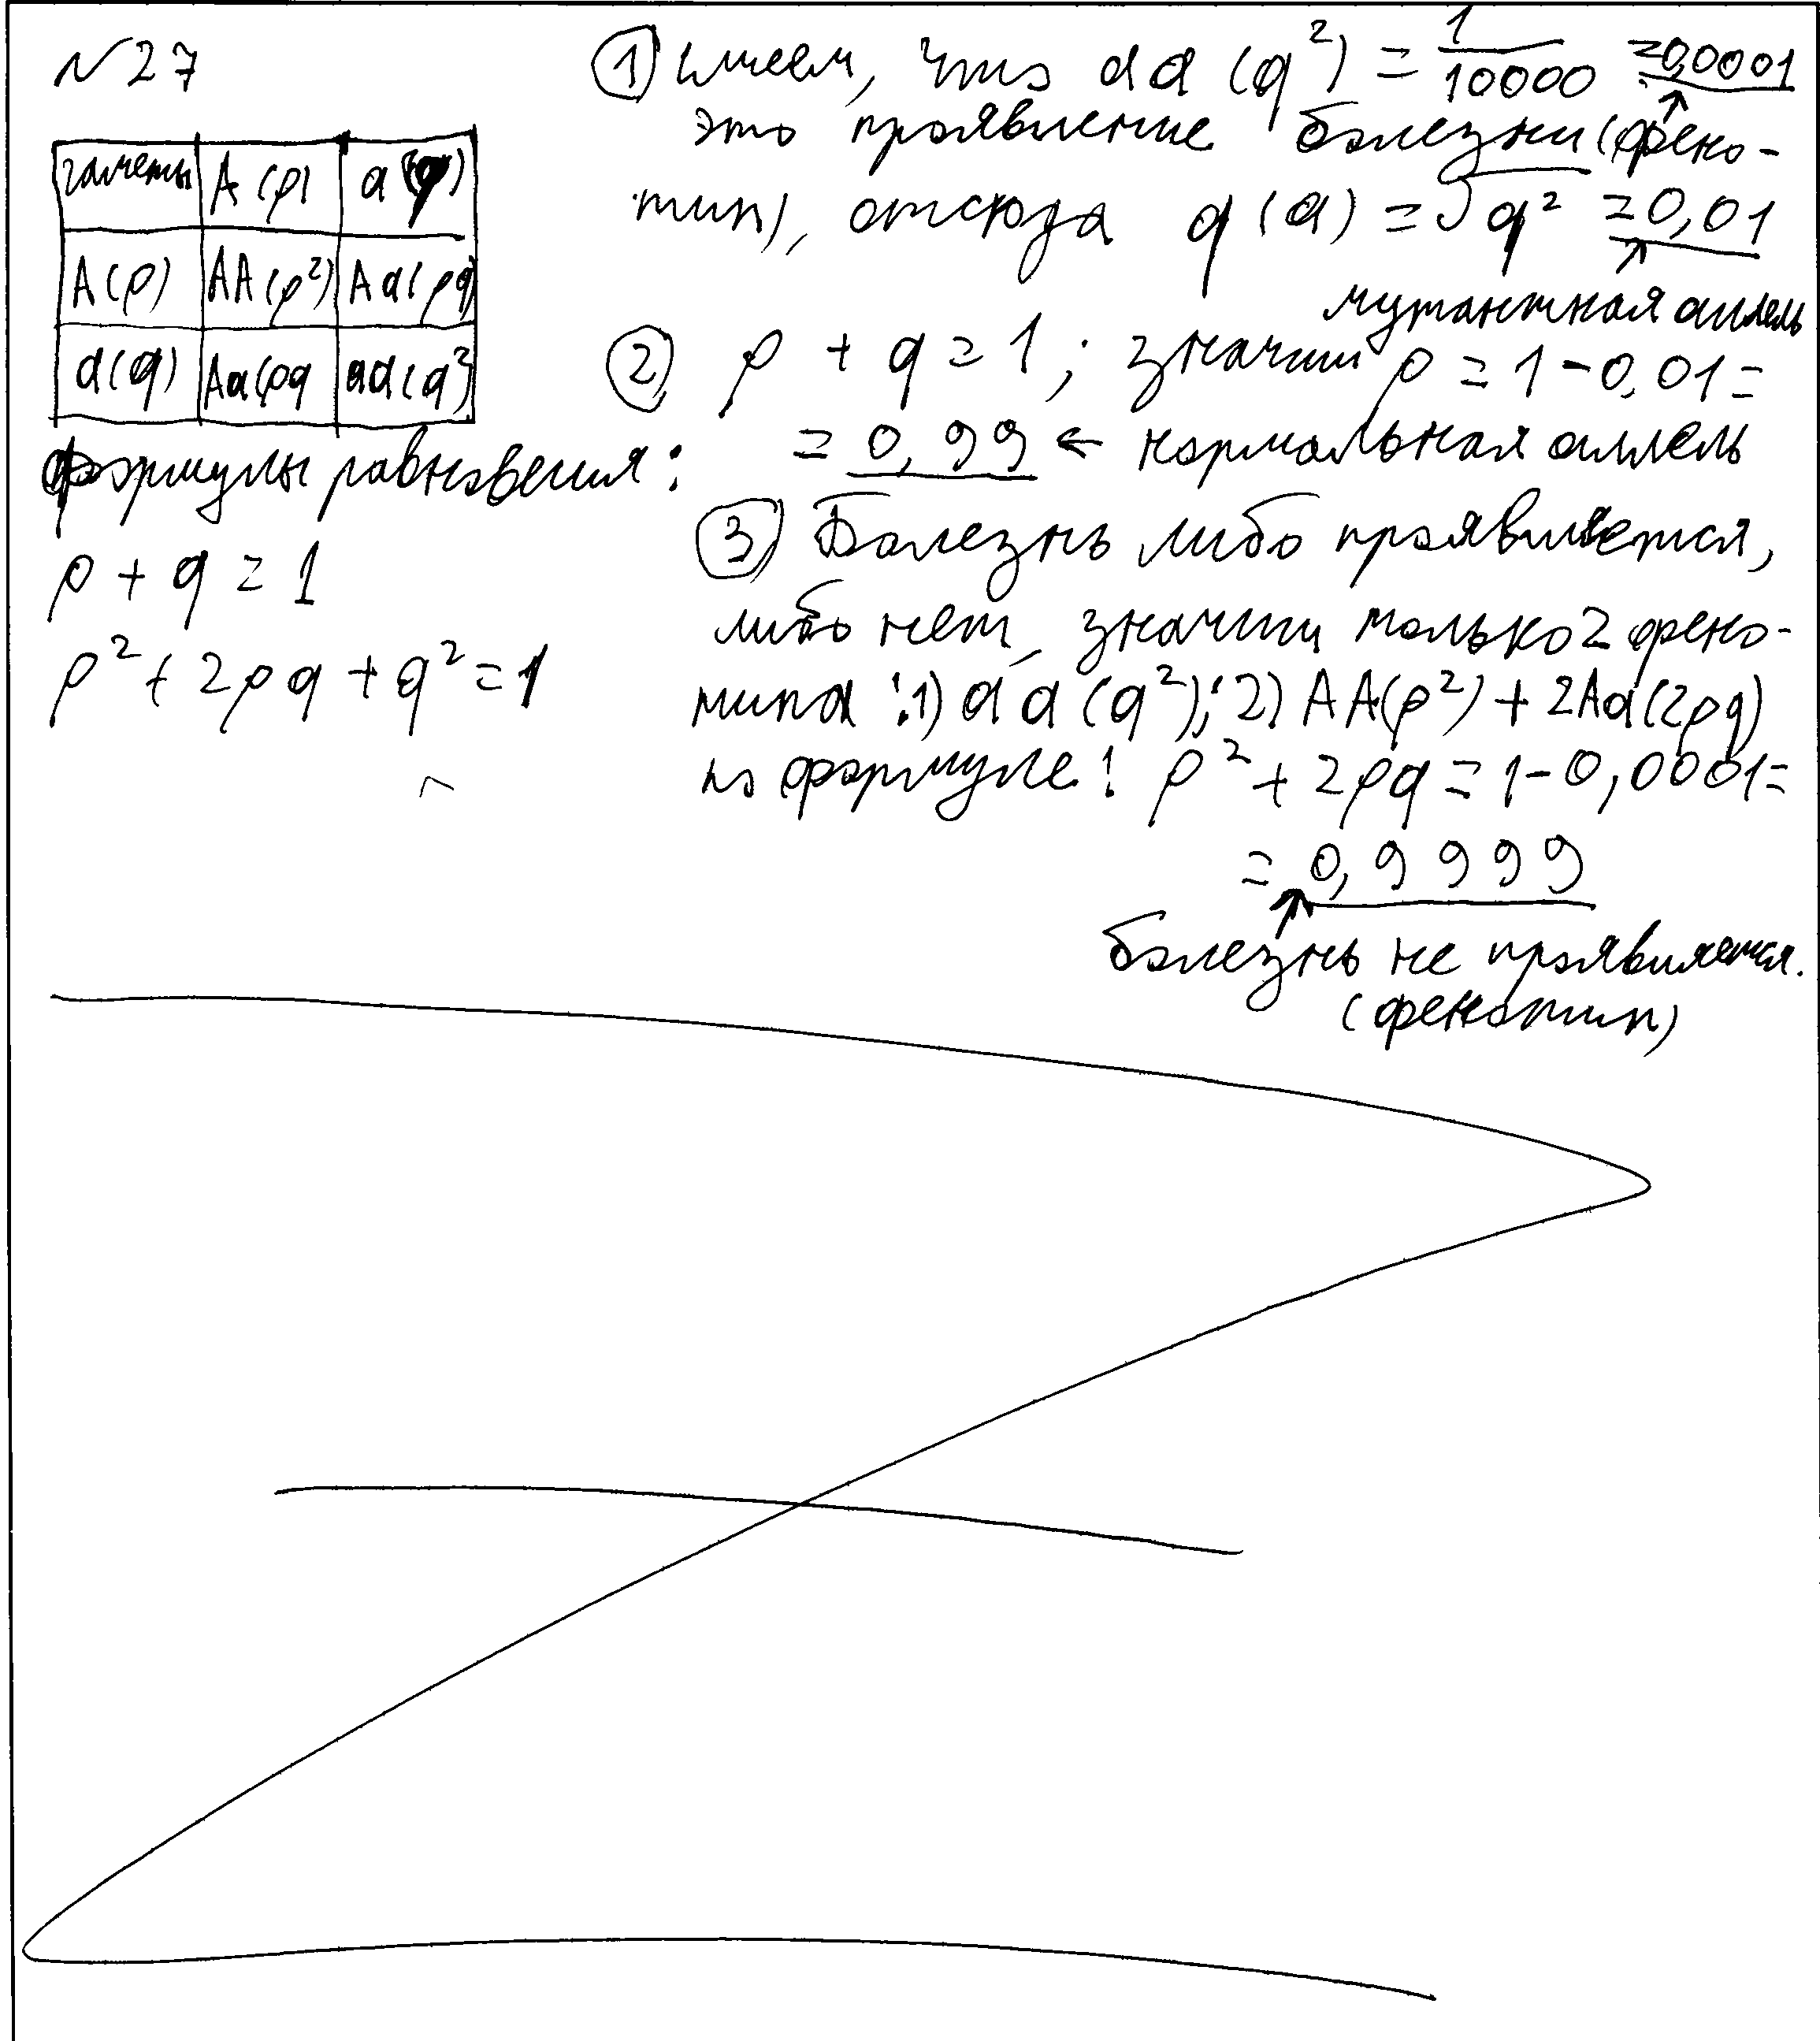 №27
гаметы A(p) a(q)
A(p) AA(p²) Aa(pq)
a(q) Aa(pq aa(q²)
формулы равновесия:
p + q = 1
p² + 2pq + q² = 1
① имеем, что aa (q²) = 1/10000 = 0,0001
это проявление болезни (фено-
тип), отсюда q (a) = √q² = 0,01
мутантная аллель
② p + q = 1; значит p = 1 - 0,01 =
= 0,99 ← нормальная аллель
③ Болезнь либо проявляется,
либо нет, значит только 2 фено-
типа: 1) aa (q²); 2) AA(p²) + 2Aa(2pq)
по формуле: p² + 2pq = 1 - 0,0001 =
= 0,9999
болезнь не проявляется.
(фенотип)